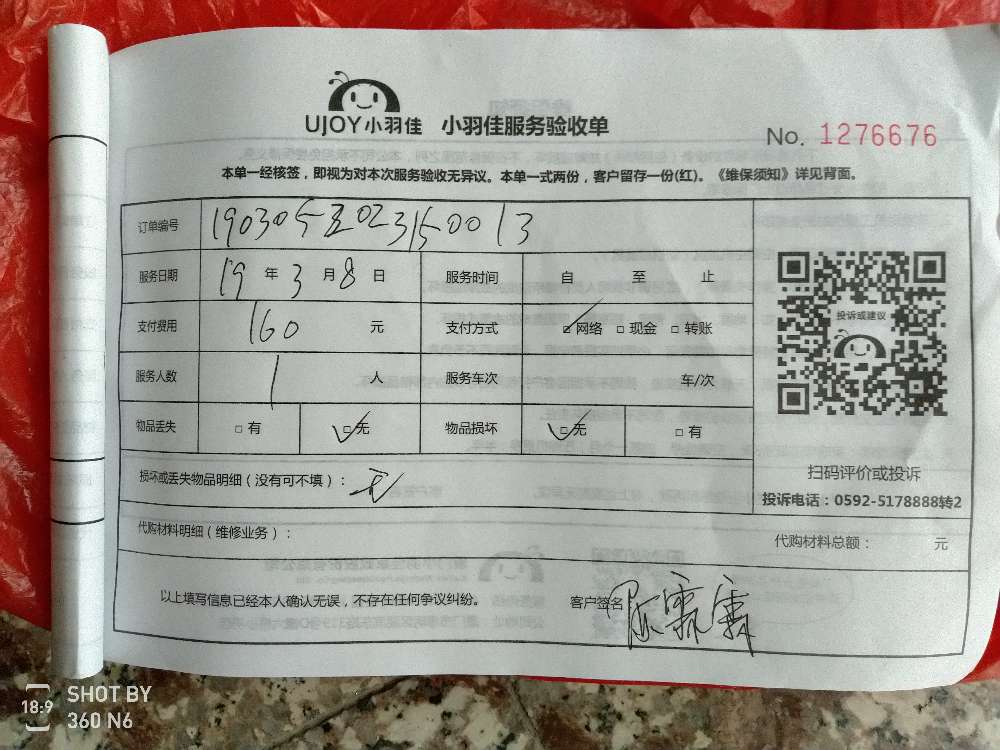 UJOY小羽佳 小羽佳服务验收单
No. 1276676
本单一经核签，即视为对本次服务验收无异议。本单一式两份，客户留存一份(红)。《维保须知》详见背面。
订单编号 190305520231500 13
服务日期 19 年 3 月 8 日 服务时间 自 至 止
支付费用 160 元 支付方式 ☑网络 □现金 □转账
投诉或建议
服务人数 1 人 服务车次 车/次
物品丢失 □有 ☑无 物品损坏 ☑无 □有
损坏或丢失物品明细（没有可不填）： 无
扫码评价或投诉
投诉电话：0592-5178888转2
代购材料明细（维修业务）：
代购材料总额： 元
以上填写信息已经本人确认无误，不存在任何争议纠纷。 客户签名
SHOT BY
18:9 360 N6